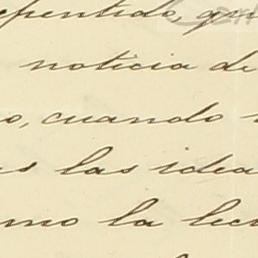 repentido, que
noticia de
o, cuando
as las idea
omo la lec